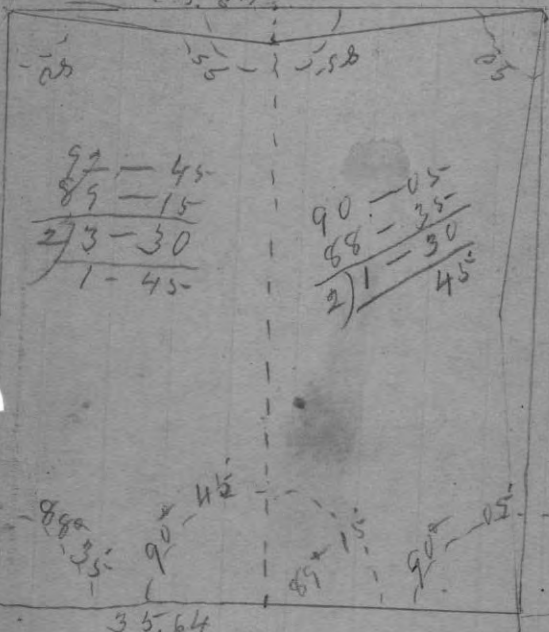 92 - 45
89 - 15
2) 3 - 30
1 - 45
90 - 05
88 - 35
2) 1 - 30
45
88° 35'
90° 45'
89° 15'
90° 05'
35.64